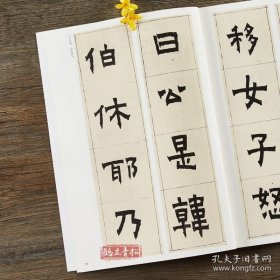 移女子怒
曰公是韓
伯休耶乃
孔夫子旧书网